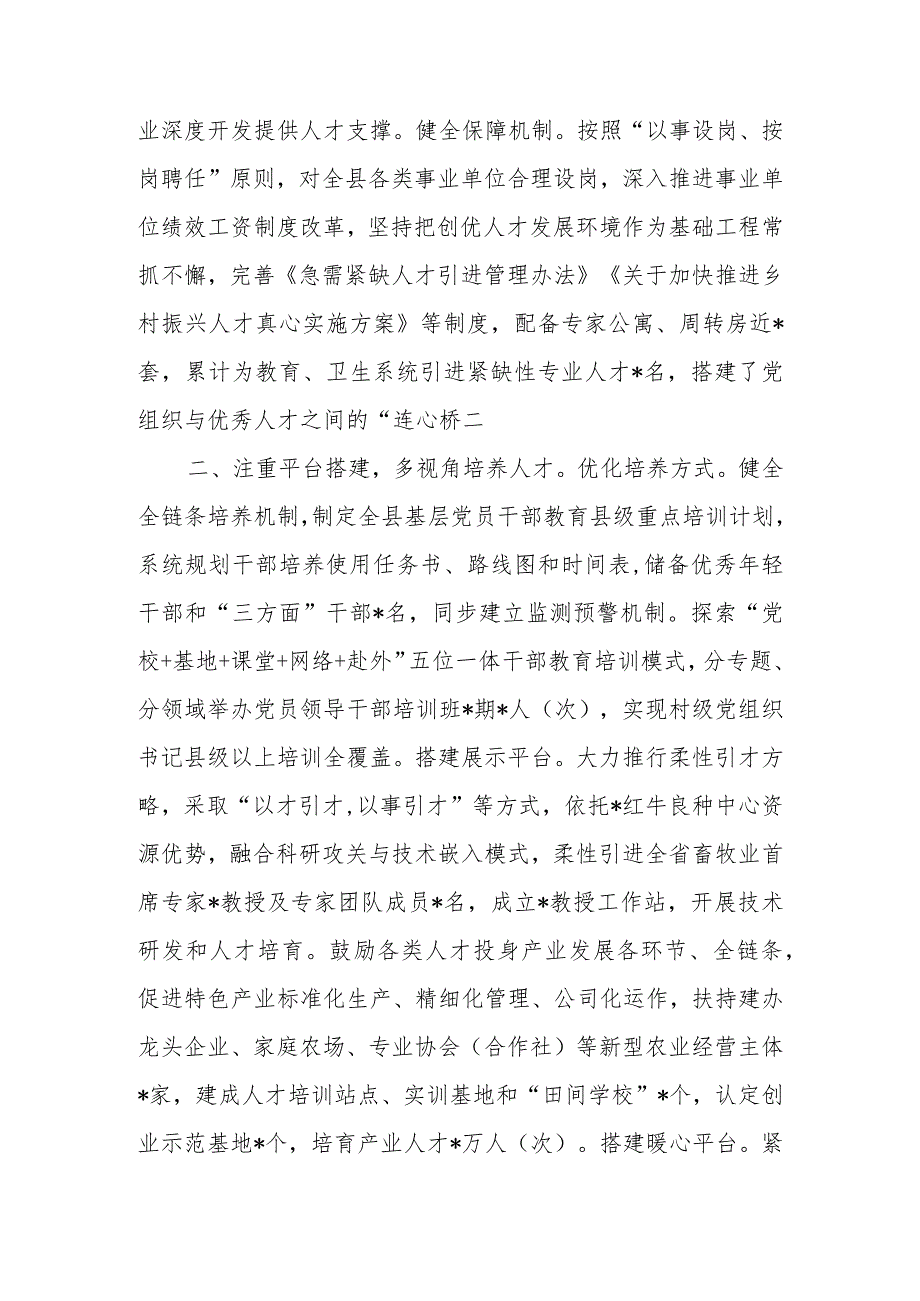 业深度开发提供人才支撑。健全保障机制。按照“以事设岗、按
岗聘任”原则，对全县各类事业单位合理设岗，深入推进事业单
位绩效工资制度改革，坚持把创优人才发展环境作为基础工程常
抓不懈，完善《急需紧缺人才引进管理办法》《关于加快推进乡
村振兴人才真心实施方案》等制度，配备专家公寓、周转房近*
套，累计为教育、卫生系统引进紧缺性专业人才*名，搭建了党
组织与优秀人才之间的“连心桥二
二、注重平台搭建，多视角培养人才。优化培养方式。健全
全链条培养机制,制定全县基层党员干部教育县级重点培训计划，
系统规划干部培养使用任务书、路线图和时间表,储备优秀年轻
干部和“三方面”干部*名，同步建立监测预警机制。探索“党
校+基地+课堂+网络+赴外”五位一体干部教育培训模式，分专题、
分领域举办党员领导干部培训班*期*人（次），实现村级党组织
书记县级以上培训全覆盖。搭建展示平台。大力推行柔性引才方
略，采取“以才引才,以事引才”等方式，依托*红牛良种中心资
源优势，融合科研攻关与技术嵌入模式，柔性引进全省畜牧业首
席专家*教授及专家团队成员*名，成立*教授工作站，开展技术
研发和人才培育。鼓励各类人才投身产业发展各环节、全链条，
促进特色产业标准化生产、精细化管理、公司化运作，扶持建办
龙头企业、家庭农场、专业协会（合作社）等新型农业经营主体
*家，建成人才培训站点、实训基地和“田间学校”*个，认定创
业示范基地*个，培育产业人才*万人（次）。搭建暖心平台。紧